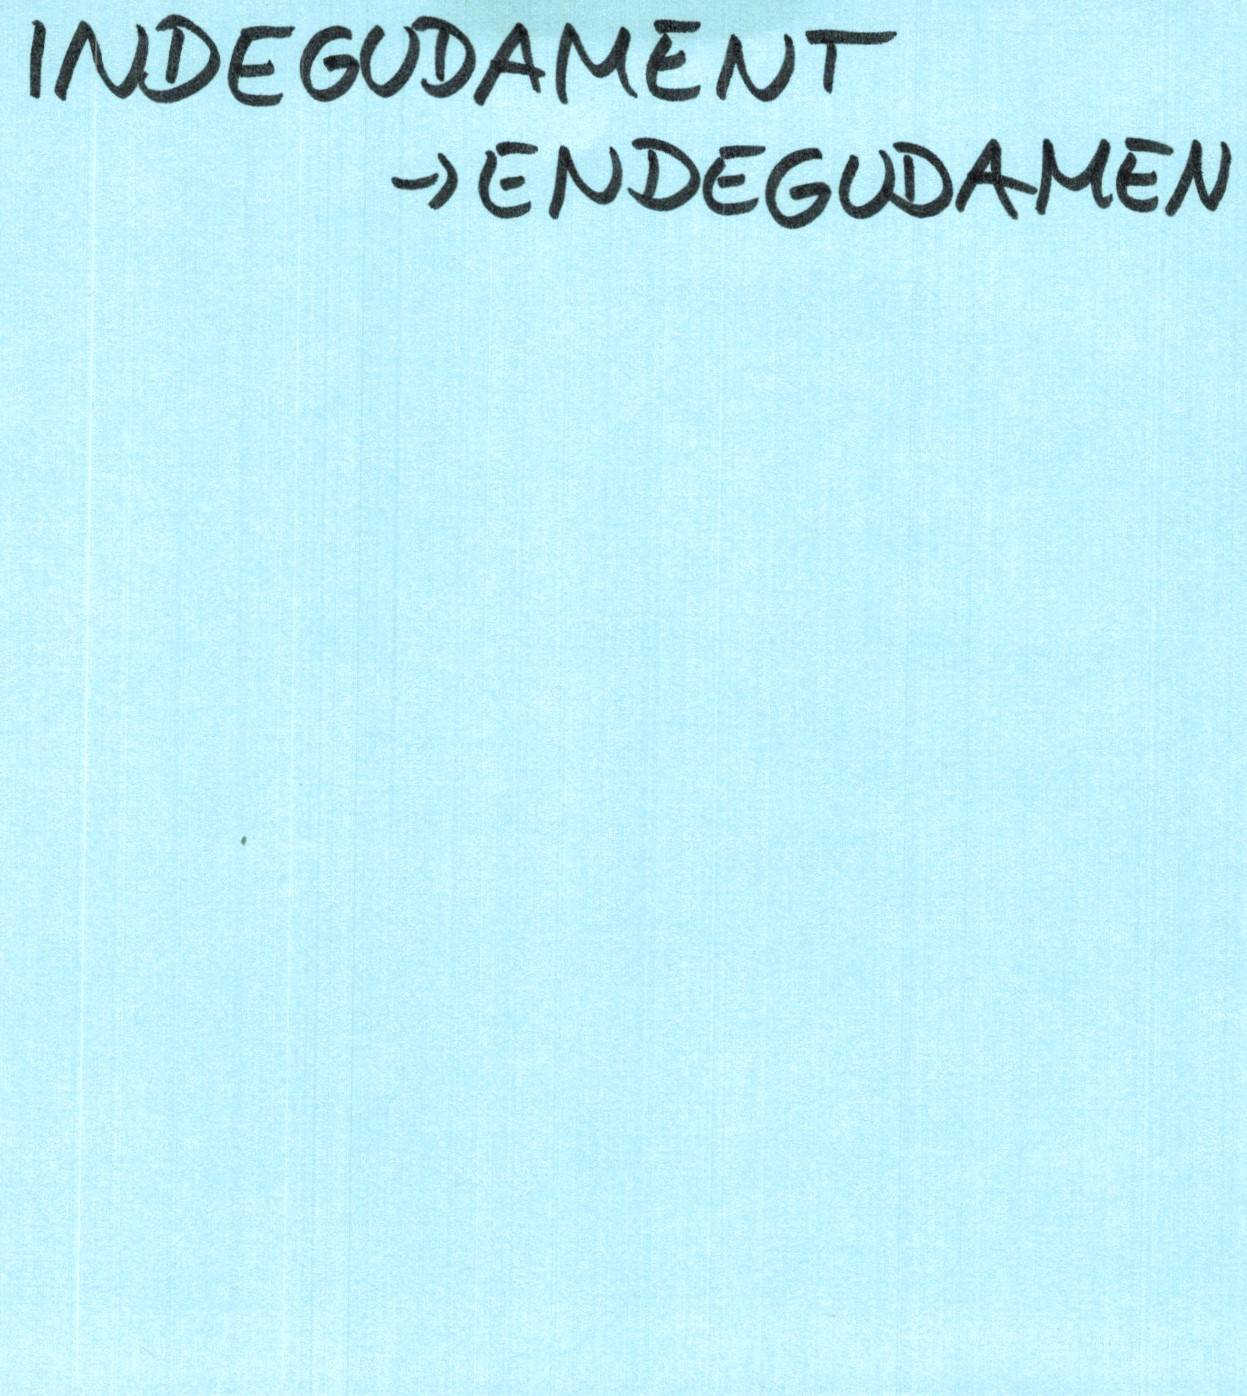 INDEGUDAMENT
→ENDEGUDAMEN